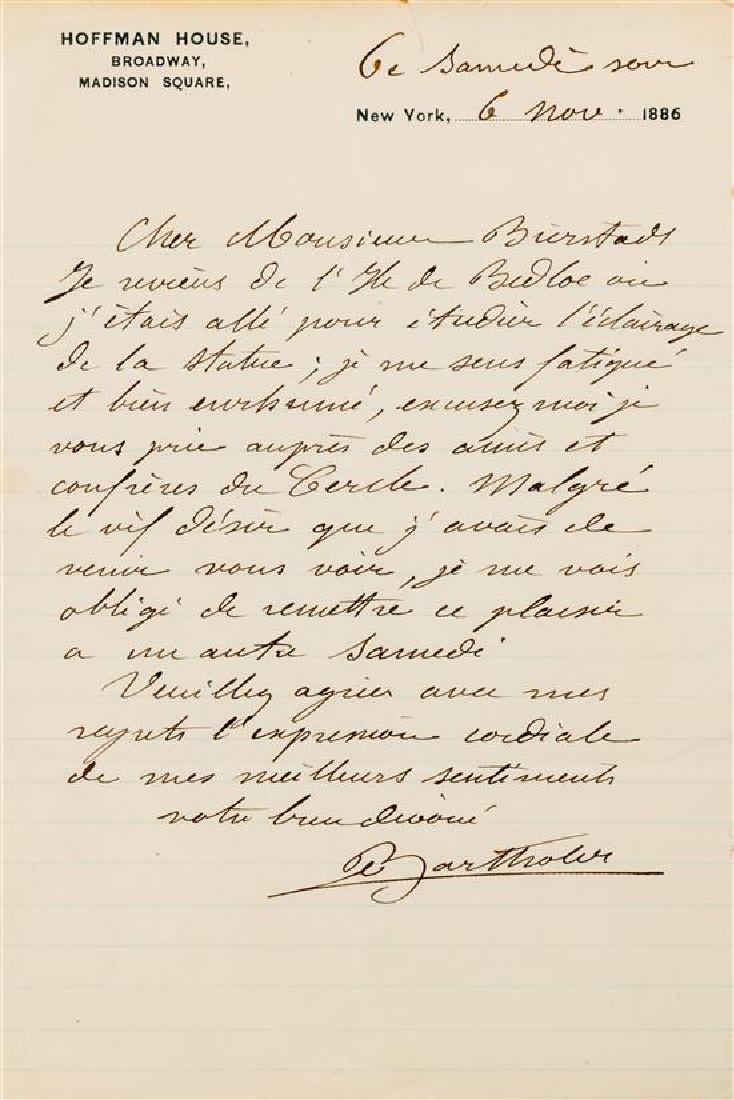 HOFFMAN HOUSE,
BROADWAY,
MADISON SQUARE,
Ce Samedi soir
New York, 6 Nov. 1886
Cher Monsieur Bierstadt
Je reviens de l'Ile de Bedloe où
j'étais allé pour étudier l'éclairage
de la statue; je me sens fatigué
et bien enrhumé, excusez moi je
vous prie auprès des amis et
confrères du Cercle. Malgré
le vif désir que j'avais de
venir vous voir, je me vois
obligé de remettre ce plaisir
a un autre Samedi
Veuillez agréer avec mes
regrets l'expression cordiale
de mes meilleurs sentiments
votre bien dévoué
Bartholdi